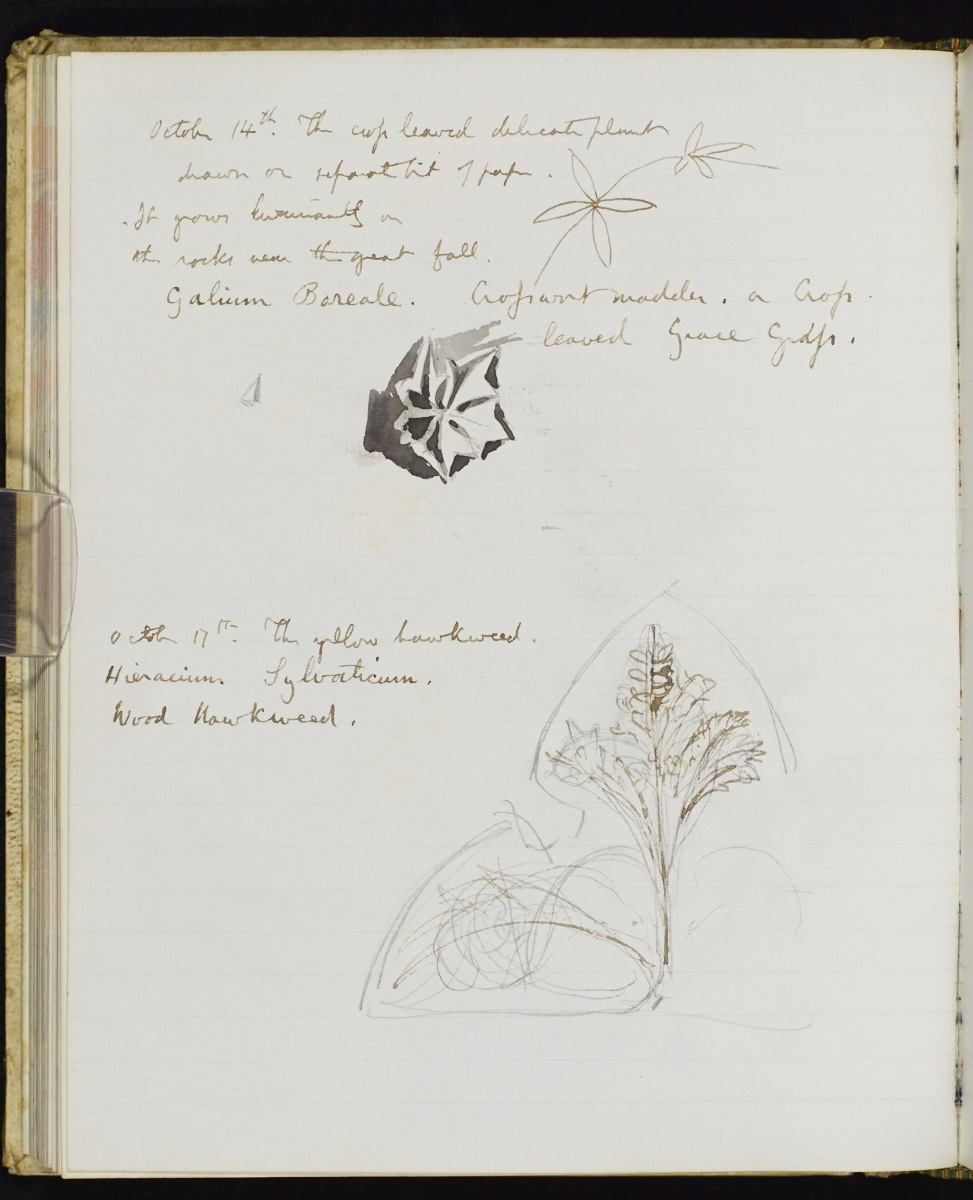 October 14th. The cross leaved delicate plant
drawn on separate bit of paper.
It grows luxuriantly on
the rocks near the great fall.
Galium Boreale. Crosswort madder. or Cross
leaved Grace Grass.
October 17th. The yellow hawkweed.
Hieracium Sylvaticum.
Wood Hawkweed.